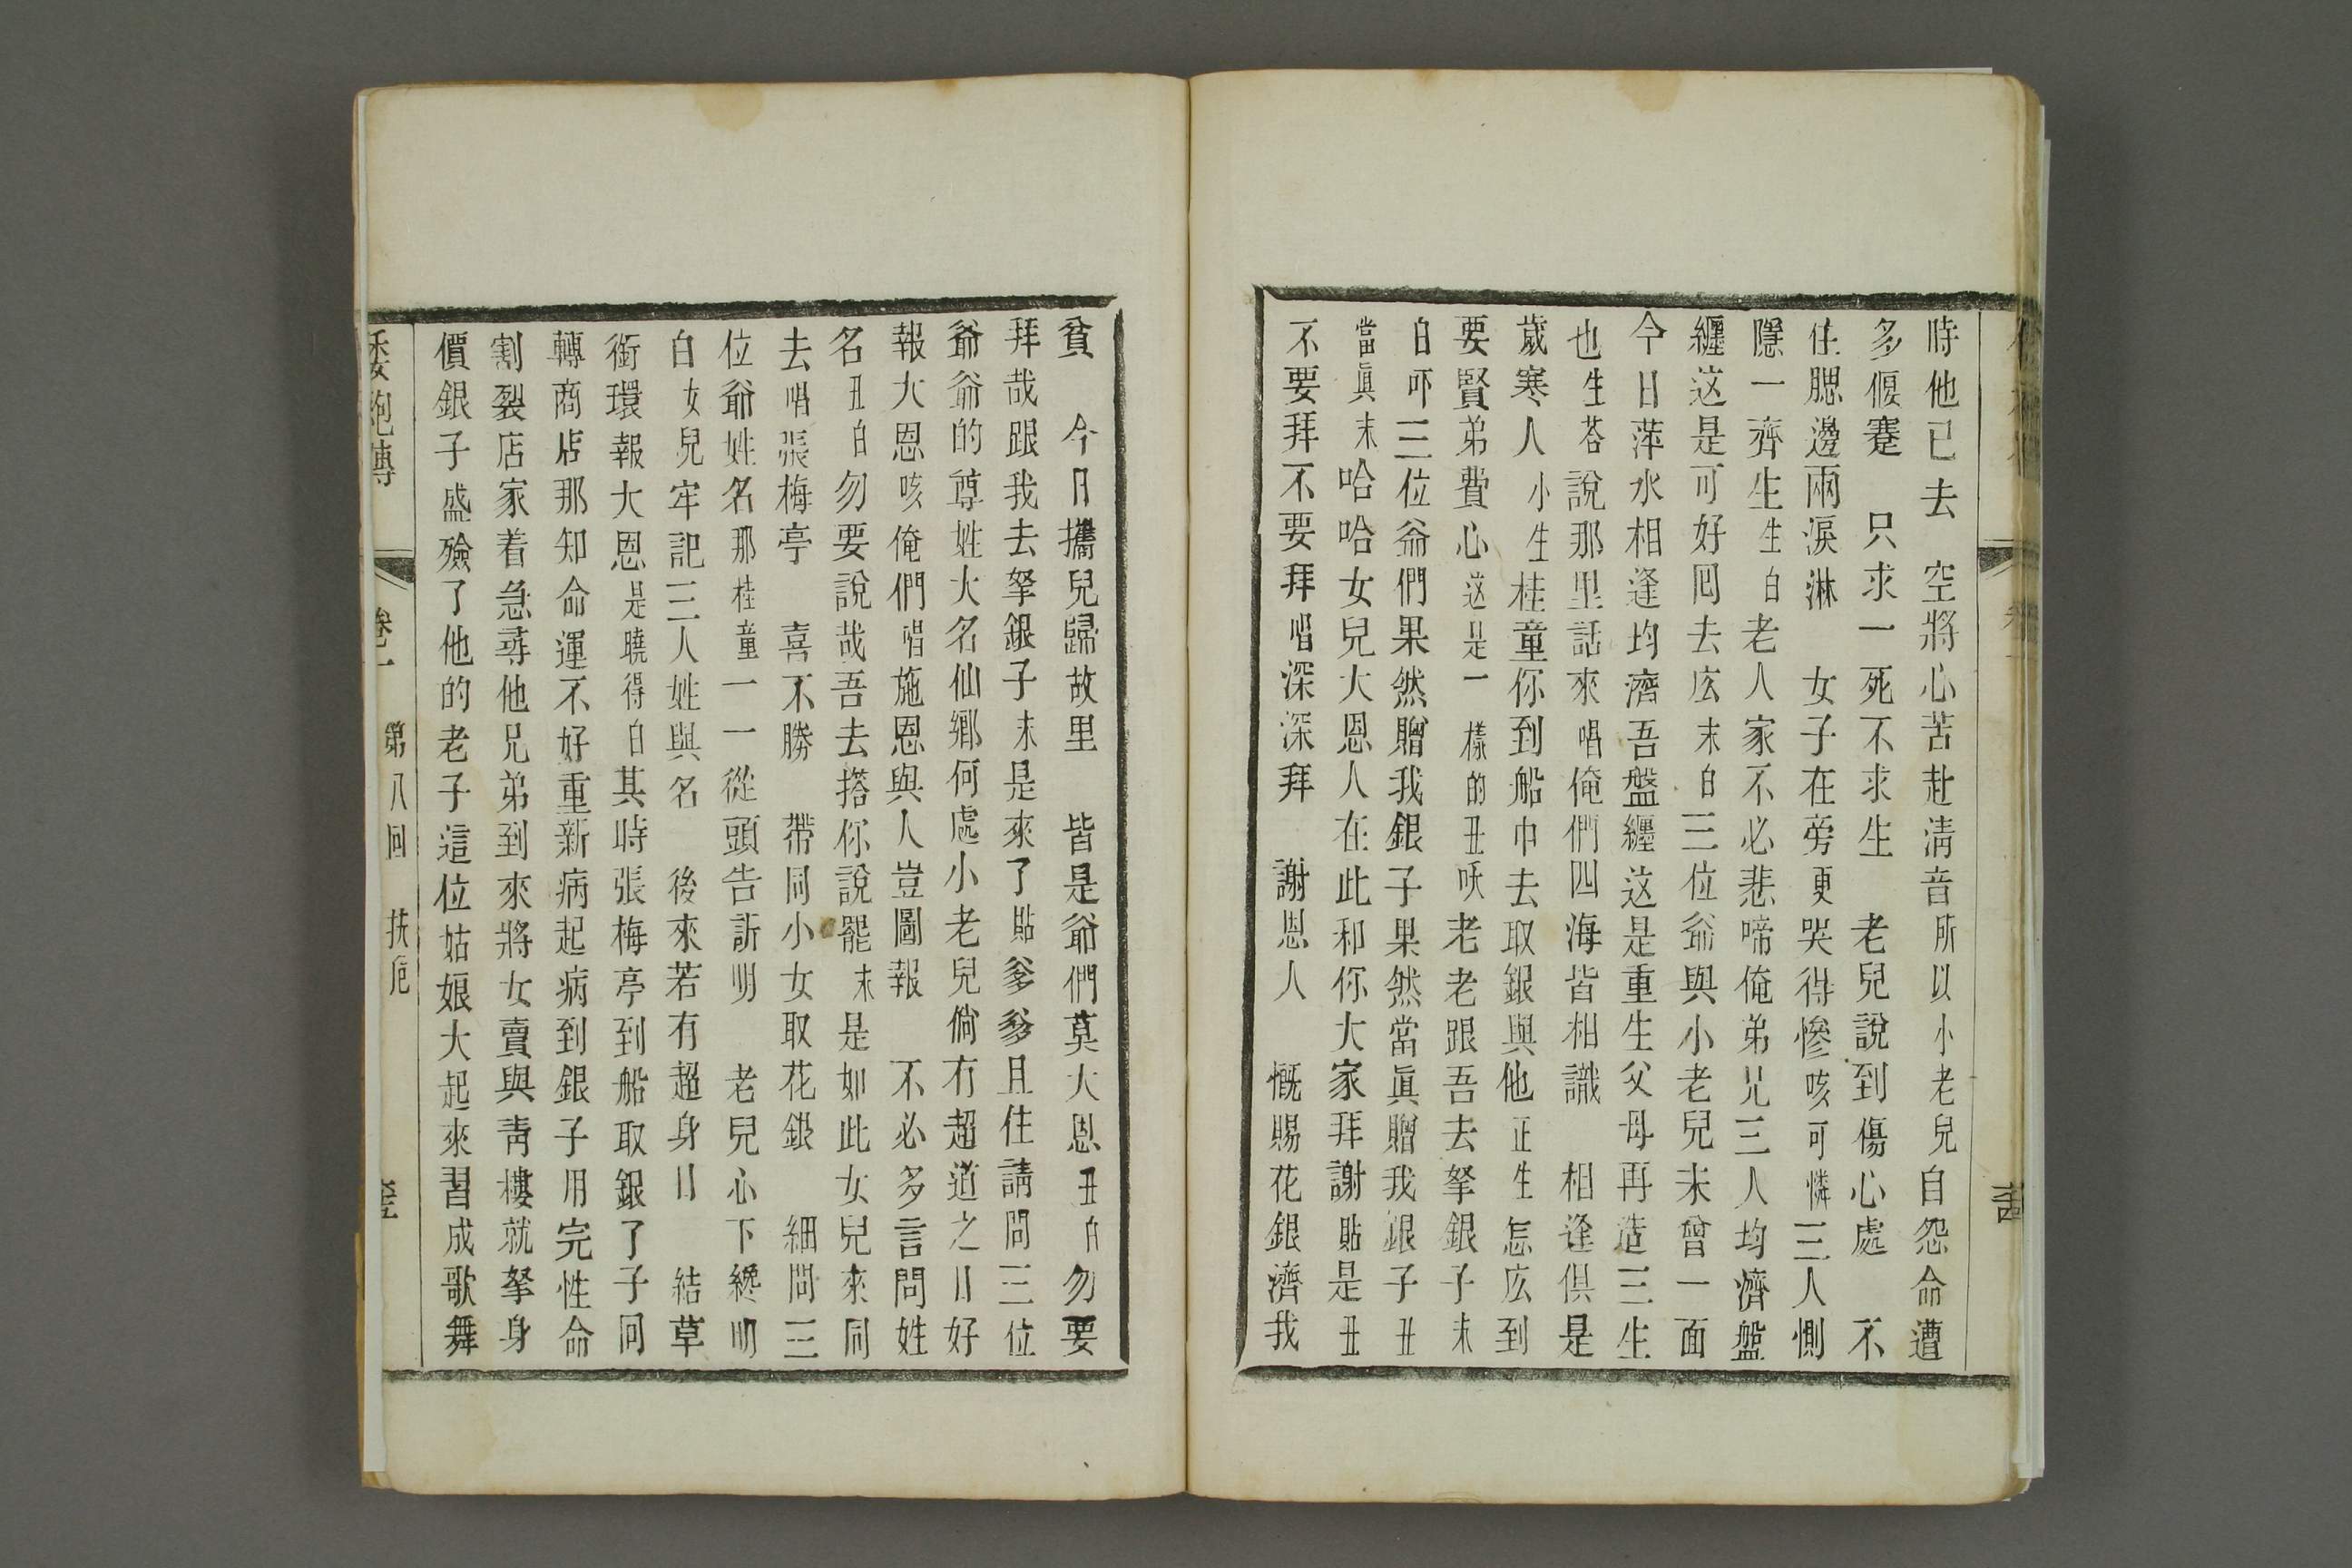 時他已去　空將心苦赴淸音所以小老兒自怨命遭
多偃蹇　只求一死不求生　老兒說到傷心處　不
住腮邊兩淚淋　女子在旁更哭得慘咳可憐三人惻
隱一齊生生白老人家不必悲啼俺弟兄三人均濟盤
纏这是可好囘去庅末白三位爺與小老兒未曾一面
今日萍水相逢均濟吾盤纏这是重生父母再造三生
也生荅說那里話來唱俺們四海皆相識　相逢俱是
歲寒人小生桂童你到船巾去取銀與他正生怎庅到
要賢弟費心这是一樣的丑呅老老跟吾去拏銀子末
白吓三位爺們果然贈我銀子果然當眞贈我銀子丑
當眞末哈哈女兒大恩人在此和你大家拜謝貼是丑
不要拜不要拜唱深深拜　謝恩人　慨賜花銀濟我
貧　今日攜兒歸故里　皆是爺們莫大恩丑白勿要
拜哉跟我去拏銀子末是來了貼爹爹且住請問三位
爺爺的尊姓大名仙鄕何處小老兒倘有超道之日好
報大恩咳俺們唱施恩與人豈圖報　不必多言問姓
名丑白勿要說哉吾去搭你說罷末是如此女兒來同
去唱張梅亭　喜不勝　帶同小女取花銀　細問三
位爺姓名那桂童一一從頭告訴明　老兒心下纔明
白女兒牢記三人姓與名　後來若有超身日　結草
銜環報大恩是曉得白其時張梅亭到船取銀了子同
轉商店那知命運不好重新病起病到銀子用完性命
割裂店家着急尋他兄弟到來將女賣與靑樓就拏身
價銀子盛殮了他的老子這位姑娘大起來習成歌舞
倭袍傳　卷一　第八回　扶危